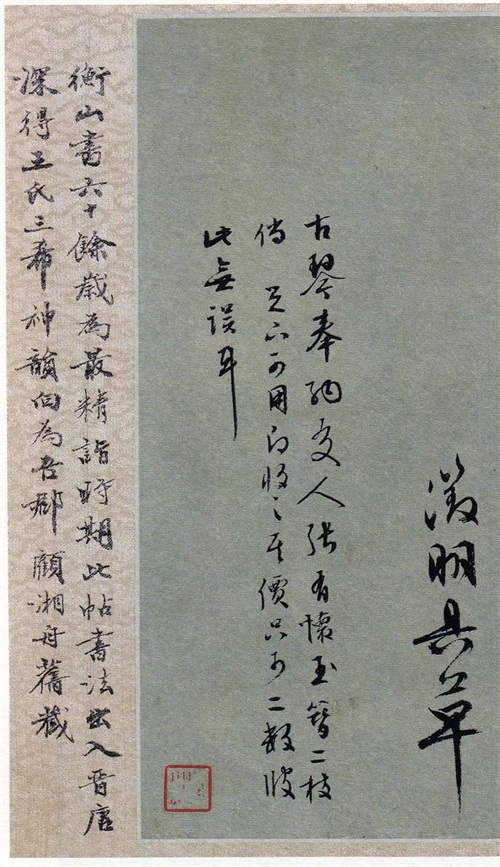 徵明具草
古琴奉納友人張有懷玉簪二枝
倘足下可用即收之其價只可二數彼
此無誤耳
衡山書六十餘歲為最精詣時期此帖書法出入晉唐
深得王氏三希神韻向為吾郡顧湘舟舊藏